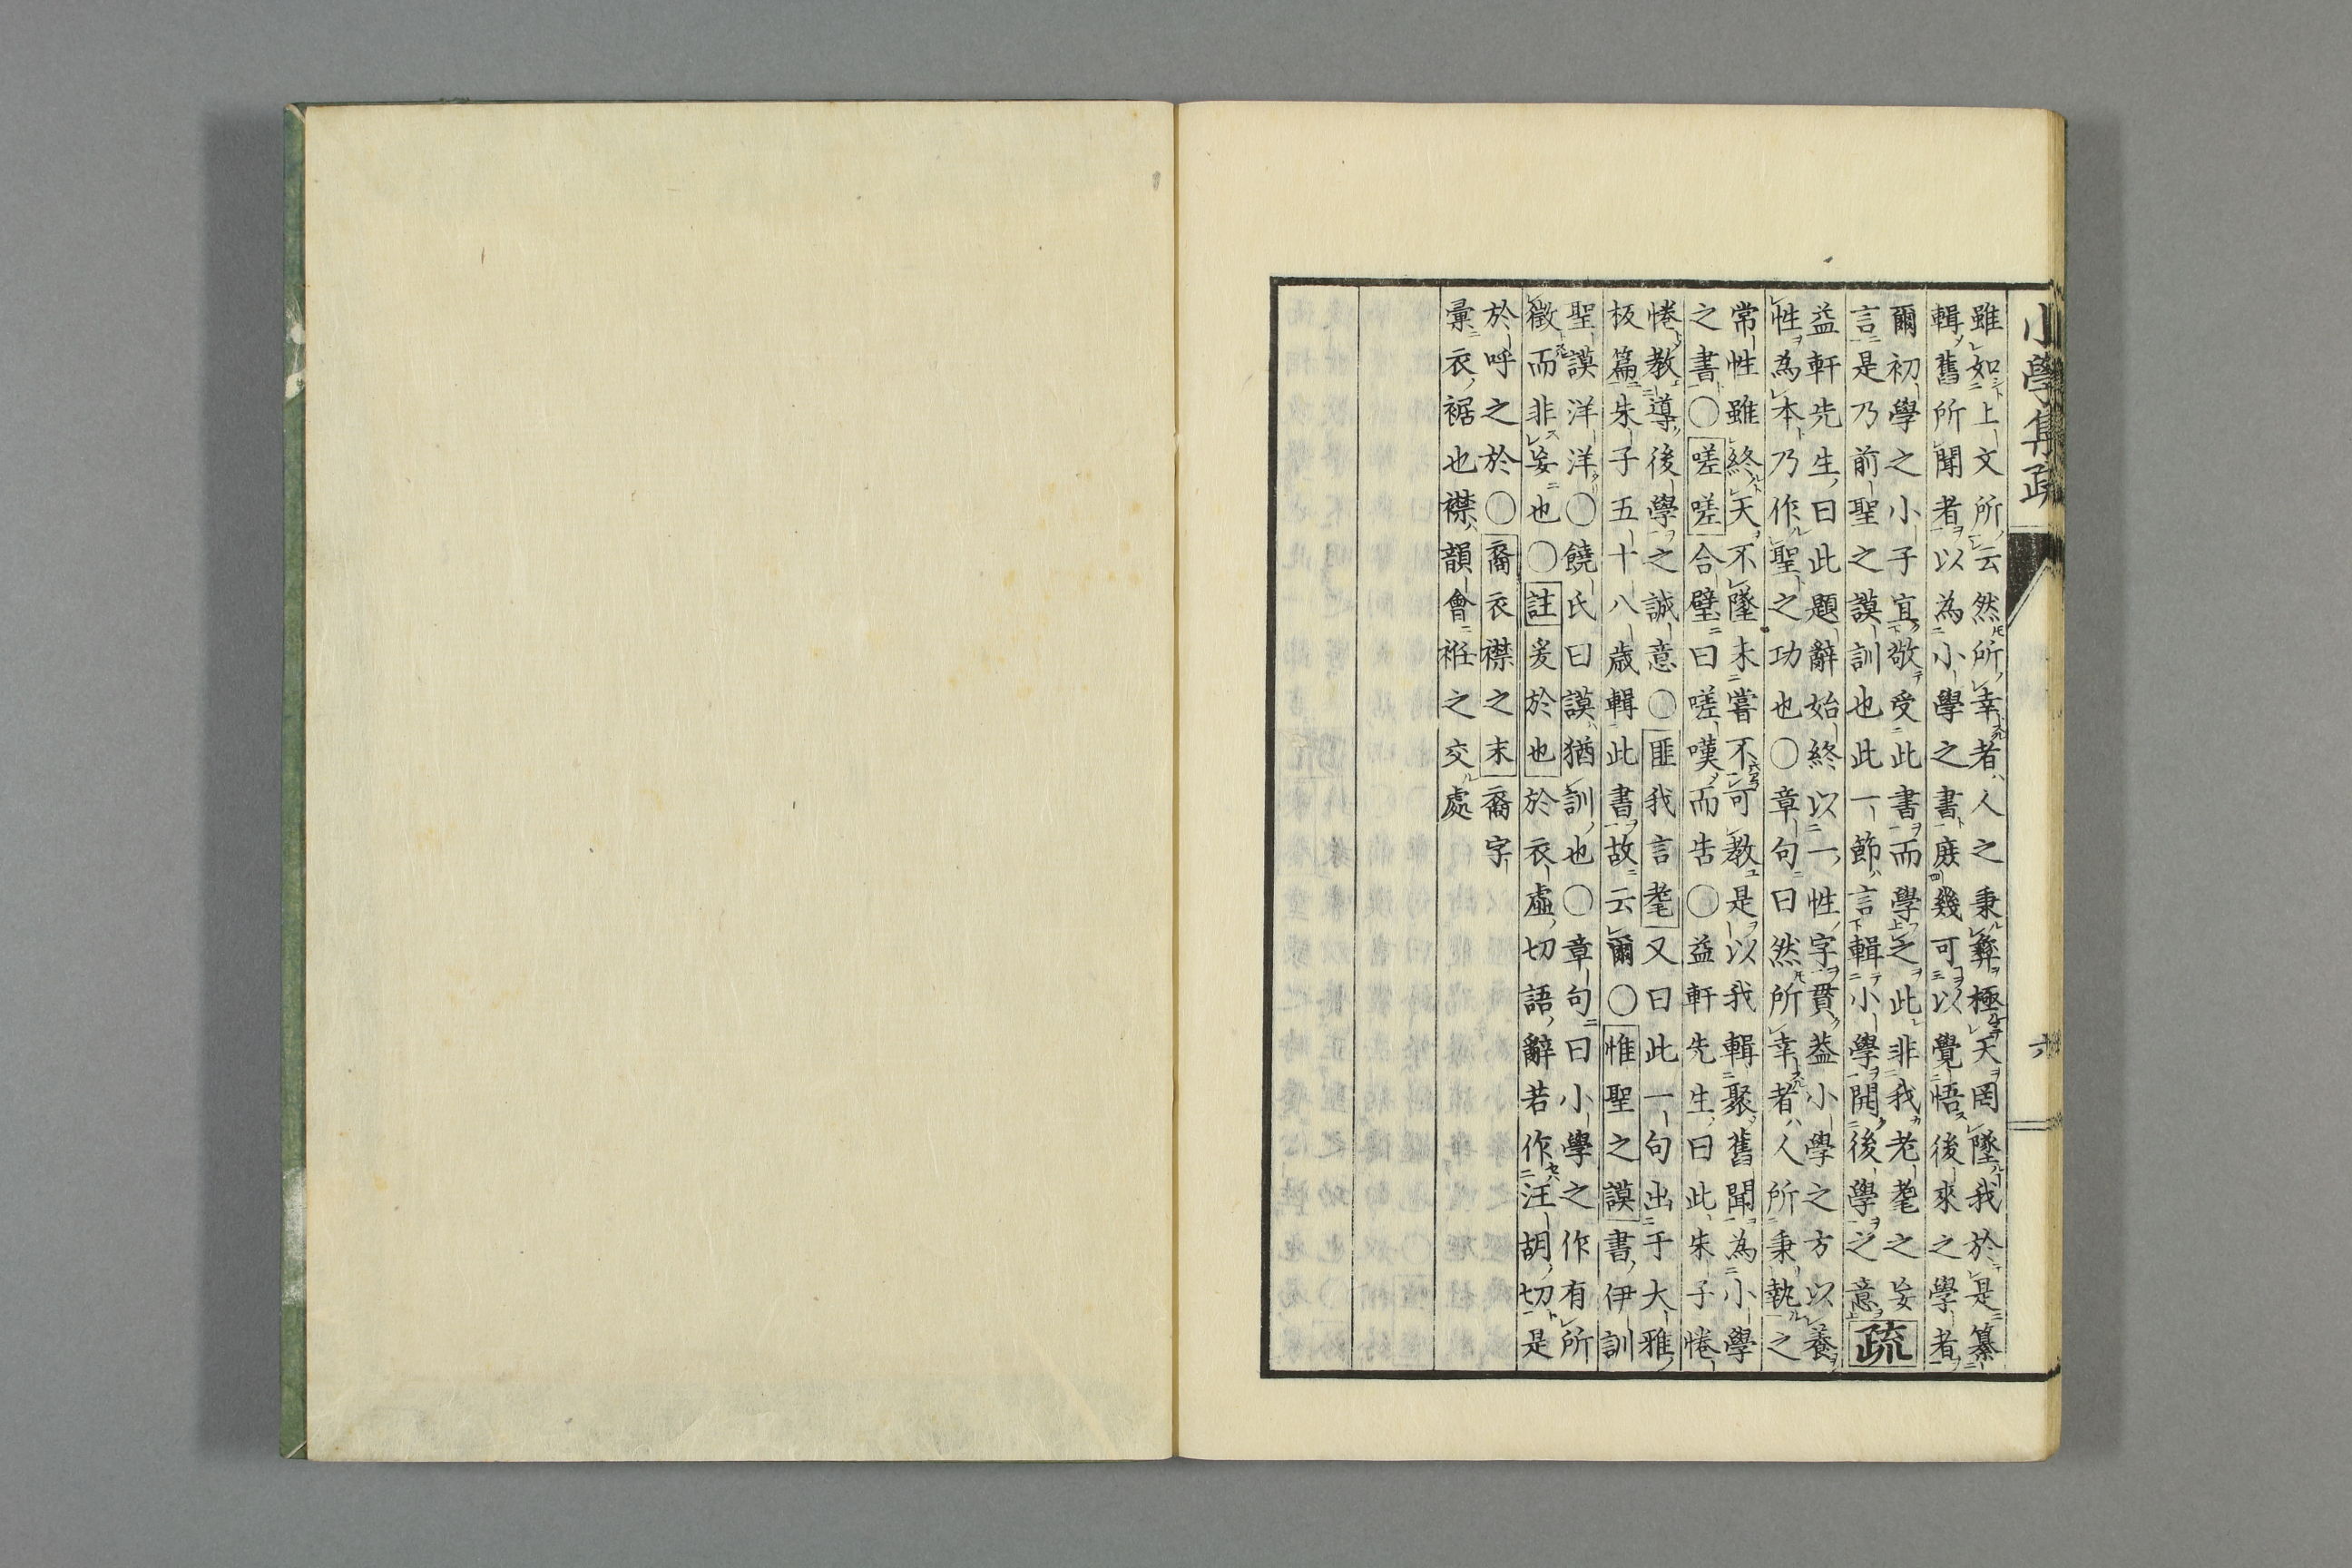 小學集疏
六
雖如上文所云然所幸者人之秉彝極天罔墜我於是纂
輯舊所聞者以為小學之書庶幾可以覺悟後來之學者
爾初學之小子宜敬受此書而學之此非我老耄之妄
言是乃前聖之謨訓也此一節言輯小學開後學之意疏
益軒先生曰此題辭始終以一性字貫蓋小學之方以養
性為本乃作聖之功也○章句曰然所幸者人所秉執之
常性雖終天不墜未嘗不可教是以我輯聚舊聞為小學
之書○嗟嗟合璧曰嗟嘆而告○益軒先生曰此朱子惓
惓教導後學之誠意○匪我言耄又曰此一句出于大雅
板篇朱子五十八歲輯此書故云爾○惟聖之謨書伊訓
聖謨洋洋○饒氏曰謨猶訓也○章句曰小學之作有所
徵而非妄也○註爰於也於衣虛切語辭若作汪胡切是
於呼之於○裔衣襟之末裔字
彙衣裾也襟韻會袵之交處